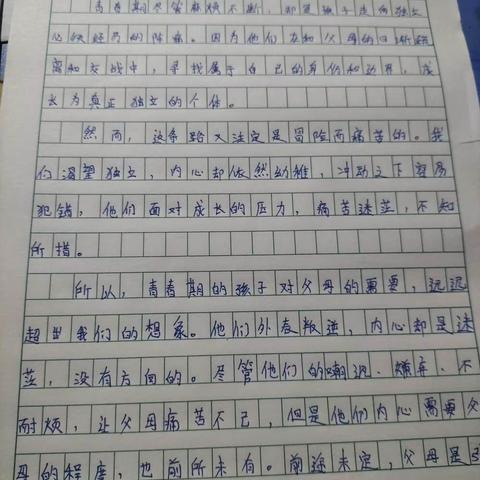 青春期尽管麻烦不断，却是孩子走向独立
心的经历的阵痛。因为他们在和父母的日渐疏
离和交战中，寻找属于自己的身份和边界，成
长为真正独立的个体。
然而，这条路又注定是冒险而痛苦的。我
们渴望独立，内心却依然幼稚，冲动之下容易
犯错，他们面对成长的压力，痛苦迷茫，不知
所措。
所以，青春期的孩子对父母的需要，远远
超出我们的想象。他们外表叛逆，内心却是迷
茫，没有方向的。尽管他们的嘲讽、嫌弃、不
耐烦，让父母痛苦不已，但是他们内心需要父
母的程度，也前所未有。前途未定，父母是